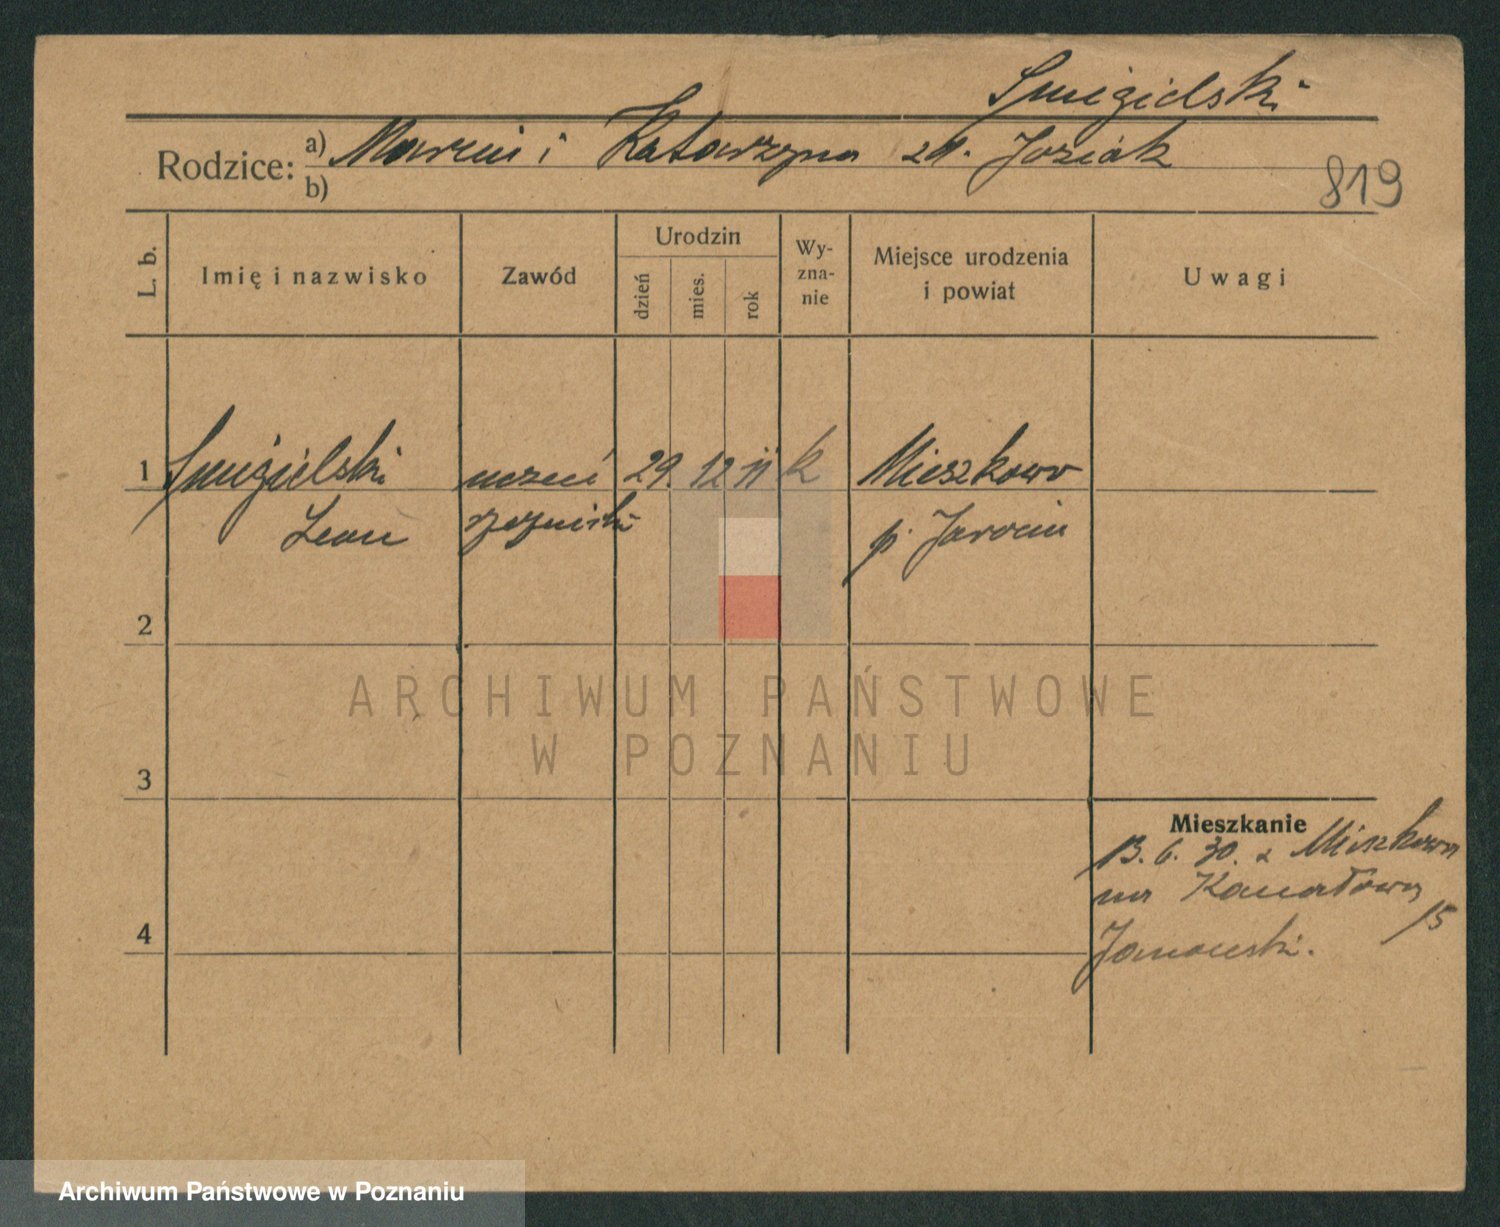 Smigielski
Rodzice: a) Marcin i Katarzyna zd. Joziak
b)
819
L. b.
Imię i nazwisko
Zawód
Urodzin
dzień
mies.
rok
Wy-
zna-
nie
Miejsce urodzenia
i powiat
Uwagi
1 Smigielski uczeń 29. 12 11 k Mieszkowo
Leon rzeźnicki p. Jarocin
2
3
4
Mieszkanie
13. 6. 30. z Mieszkowa
na Kanałową
15
Janowski.
ARCHIWUM PAŃSTWOWE
W POZNANIU
Archiwum Państwowe w Poznaniu